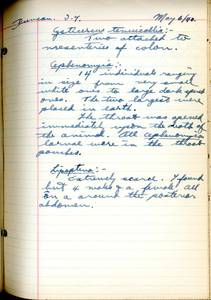 Duncan. J.Y. May 6/40.
Cysticercus tenuicollis:-
Two attached to
mesenteries of colon.
Cephenomyia:-
14 individuals ranging
in size from very small
white ones to large dark spined
ones. The two largest were
placed in earth.
The throat was opened
immediately upon the death of
the animal. All Cephenomyia
larvae were in the throat
pouches.
Lipoptena:-
Extremely scarce. I found
but 4 males & a female all
on & around the posterior
abdomen.